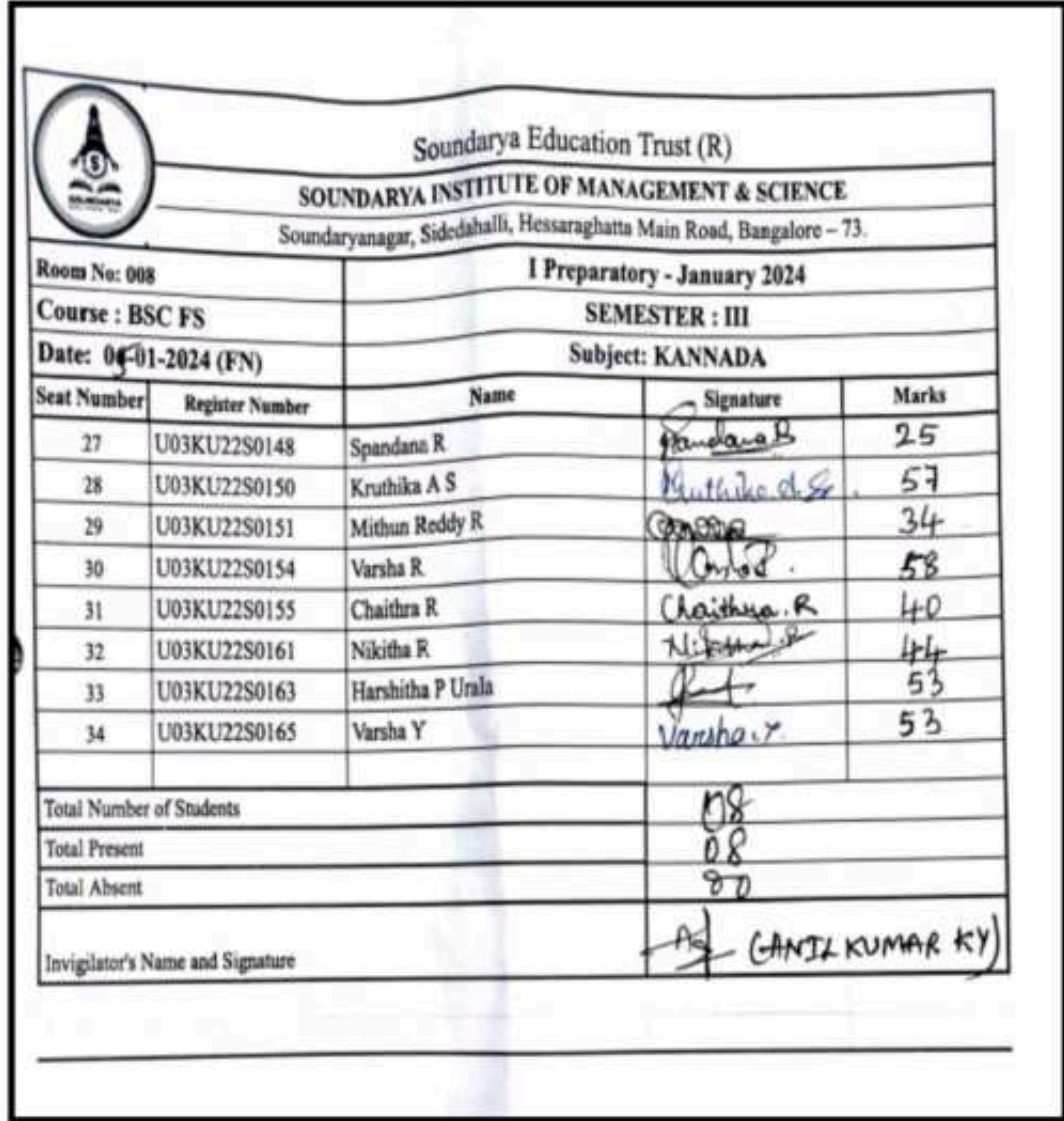 Soundarya Education Trust (R)
SOUNDARYA INSTITUTE OF MANAGEMENT & SCIENCE
Soundaryanagar, Sidedahalli, Hessaraghatta Main Road, Bangalore – 73.
Room No: 008 I Preparatory - January 2024
Course : BSC FS SEMESTER : III
Date: 05-01-2024 (FN) Subject: KANNADA
Seat Number Register Number Name Signature Marks
27 U03KU22S0148 Spandana R Spandana R 25
28 U03KU22S0150 Kruthika A S Kruthika A S. 57
29 U03KU22S0151 Mithun Reddy R 34
30 U03KU22S0154 Varsha R 58
31 U03KU22S0155 Chaithra R Chaithra.R 40
32 U03KU22S0161 Nikitha R Nikitha.R 44
33 U03KU22S0163 Harshitha P Urala 53
34 U03KU22S0165 Varsha Y Varsha.Y. 53
Total Number of Students 08
Total Present 08
Total Absent 00
Invigilator's Name and Signature (ANIL KUMAR KY)